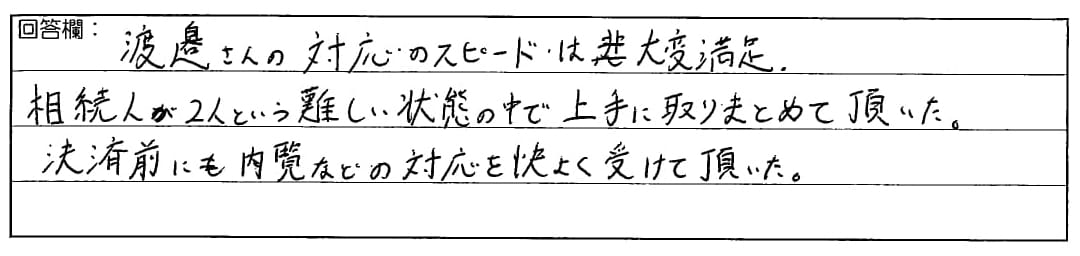 回答欄：
渡邉さんの対応のスピードは大変満足.
相続人が2人という難しい状態の中で上手に取りまとめて頂いた。
決済前にも内覧などの対応を快よく受けて頂いた。